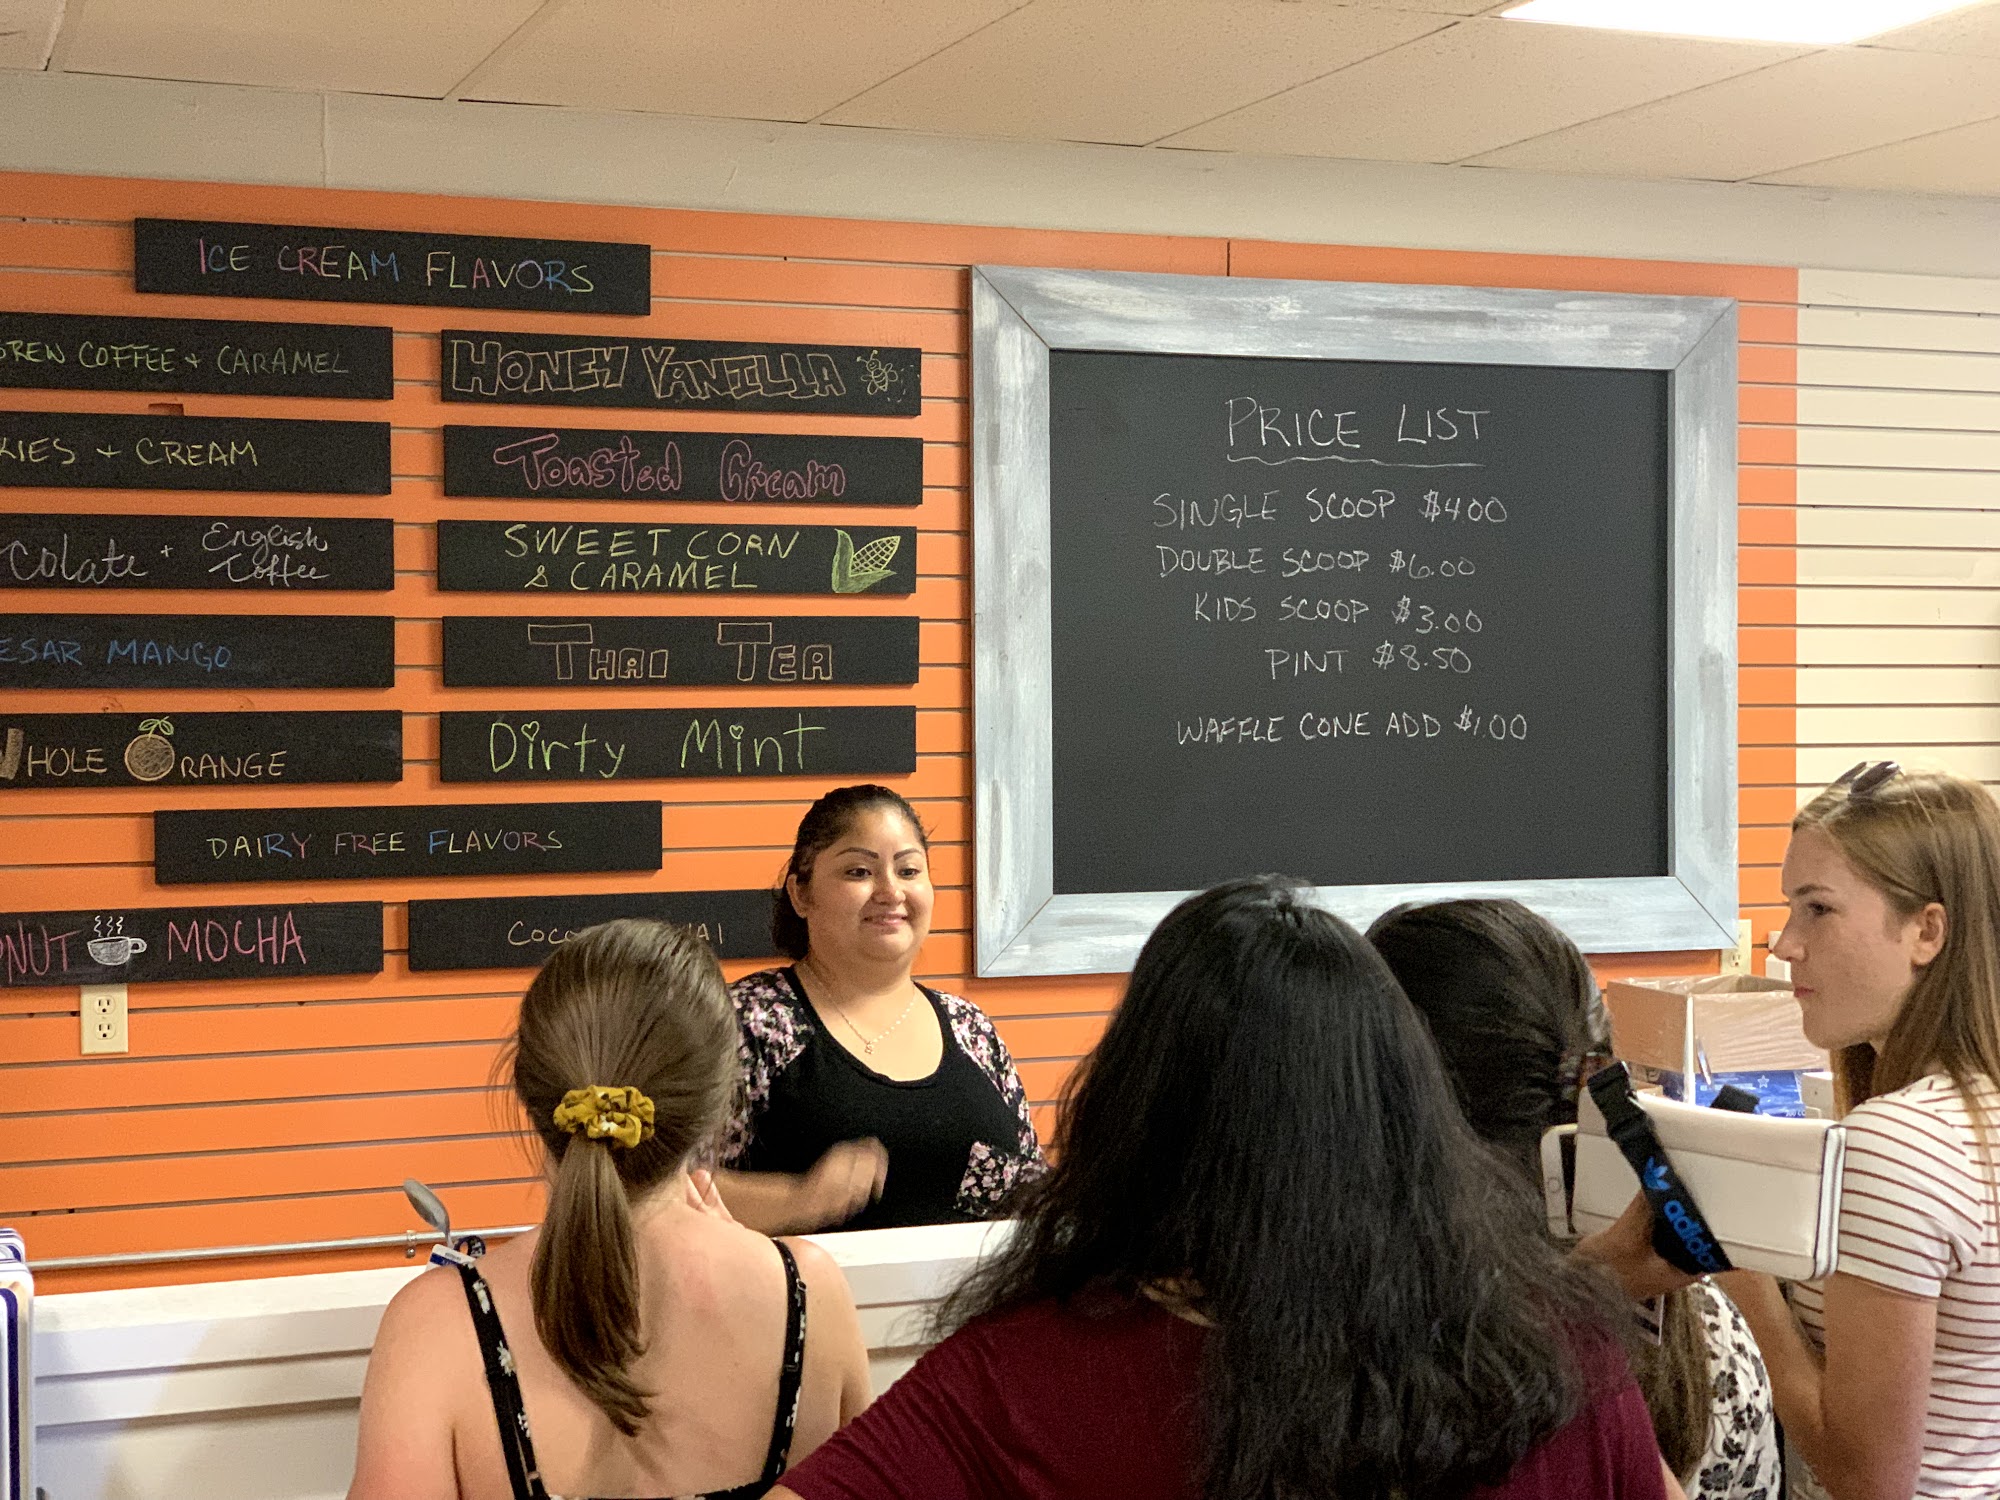 ICE CREAM FLAVORS
COFFEE + CARAMEL
HONEY VANILLA
+ CREAM
Toasted Cream
+ English
Toffee
SWEET CORN
& CARAMEL
MANGO
THAI TEA
WHOLE ORANGE
Dirty Mint
DAIRY FREE FLAVORS
MOCHA
PRICE LIST
SINGLE SCOOP $4.00
DOUBLE SCOOP $6.00
KIDS SCOOP $3.00
PINT $8.50
WAFFLE CONE ADD $1.00
adidas